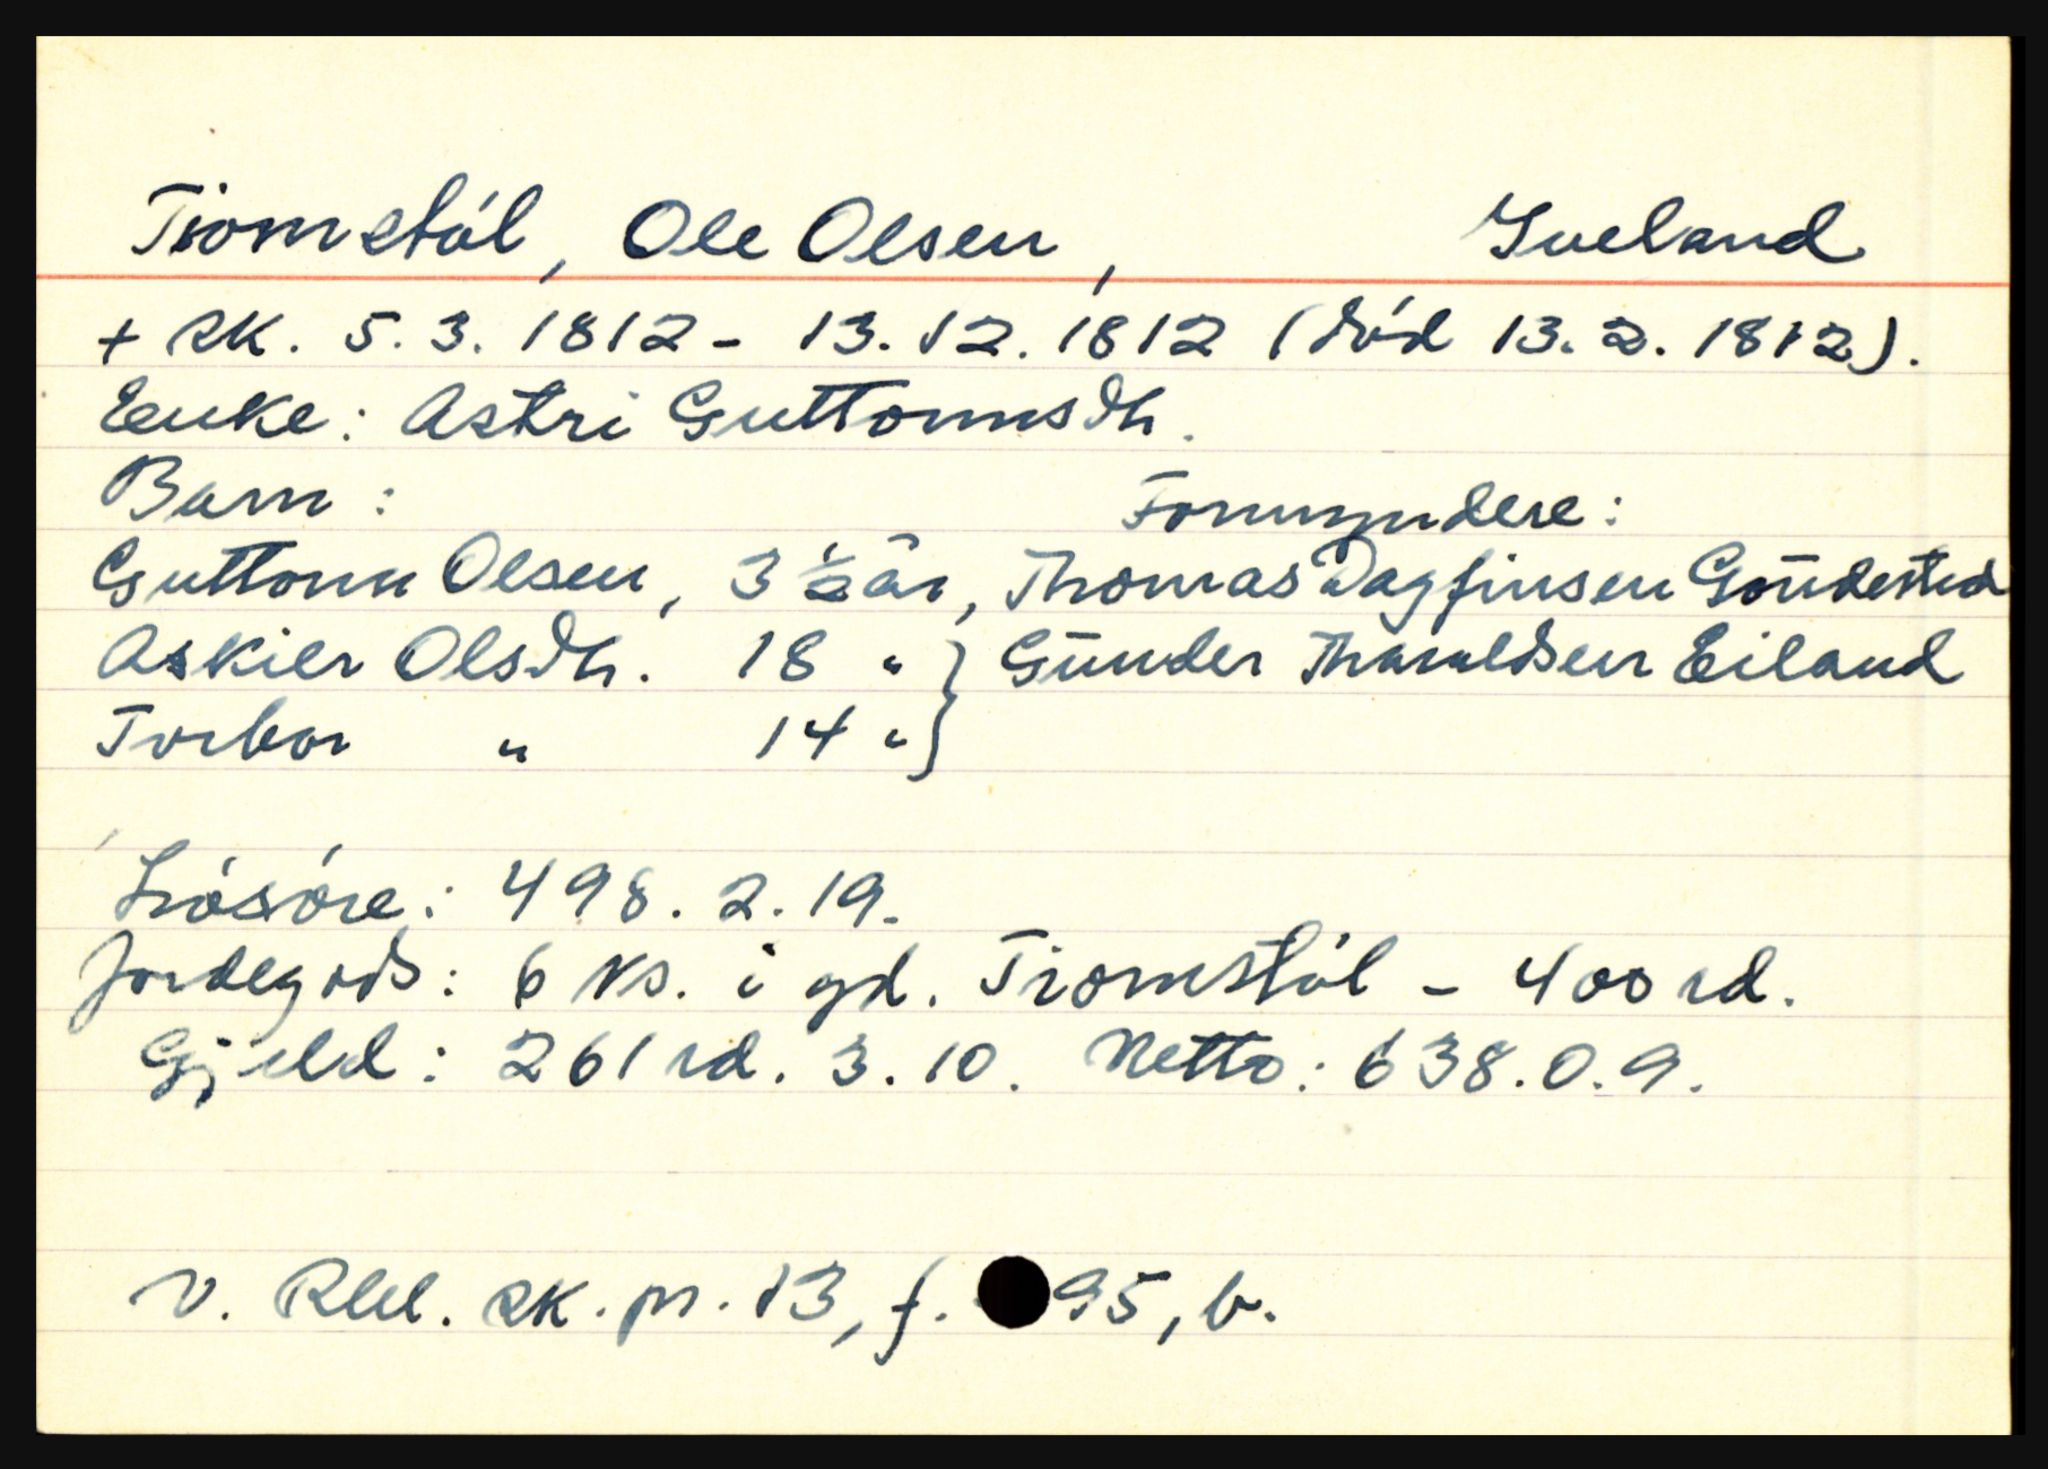 Tiomstøl, Ole Olsen, Iveland
+ SK. 5.3.1812 - 13.12.1812 (død 13.2.1812).
Enke: Astri Guttormsdtr.
Barn: Formyndere:
Guttorm Olsen, 3 ½ år, Thomas Dagfinsen
Askier Olsdtr. 18 " } Günder Tharaldsen Eiland
Torbor " 14 " }
Løsøre: 498. 2. 19.
Jordegods: 6 ks. i gd. Tiomstøl - 400 rd.
Gjeld: 261 rd. 3. 10. Netto: 638. 0. 9.
V. Rbl. SK. pr. 13, f. 95, b.